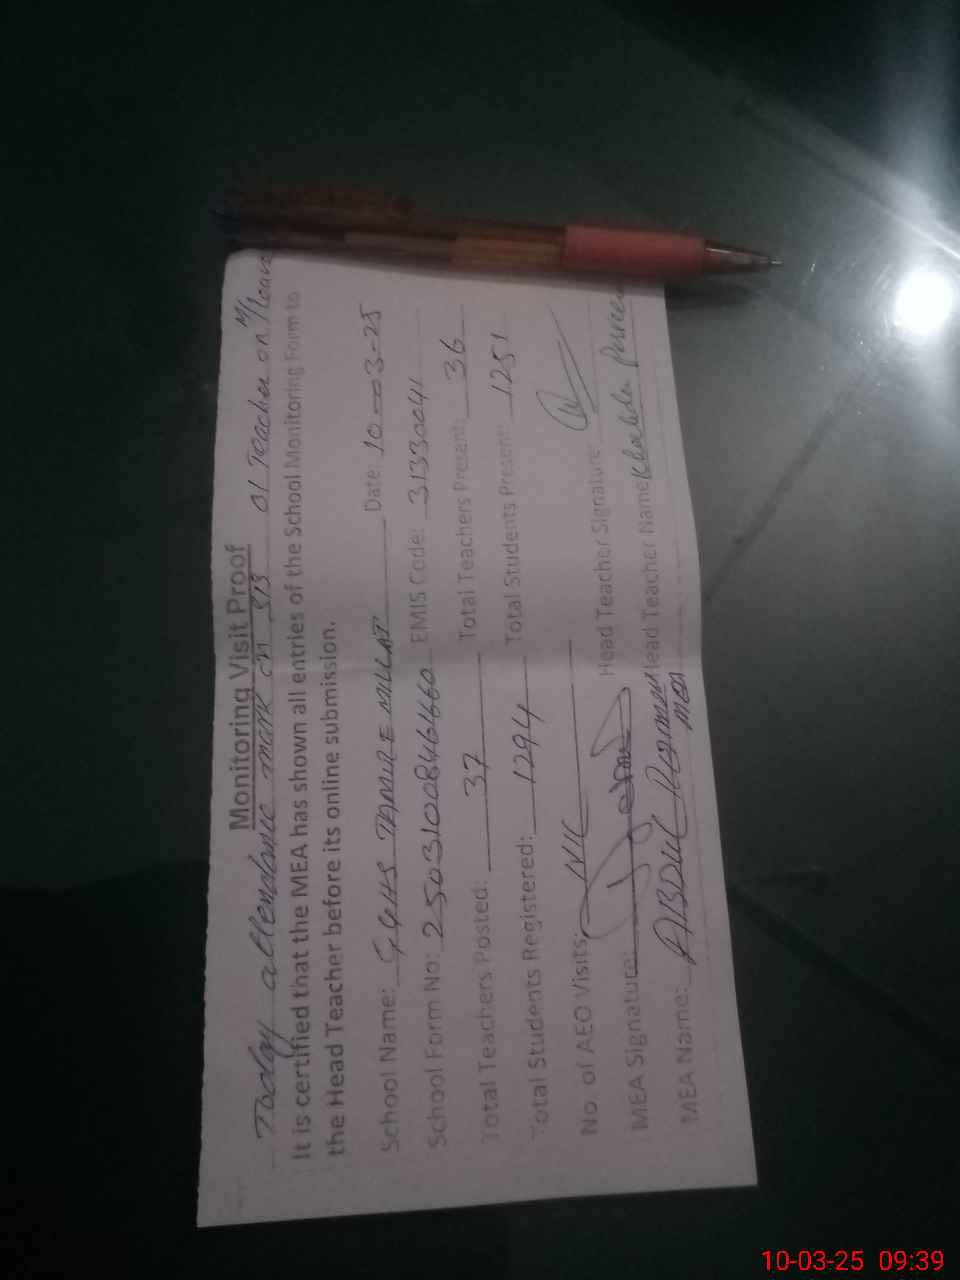 Monitoring Visit Proof
Today attendance mark on SIS 01 Teacher on M/leave
It is certified that the MEA has shown all entries of the School Monitoring Form to
the Head Teacher before its online submission.
School Name: GGHS TAMIRE MILLAT Date: 10-03-25
School Form No: 25031008461660 EMIS Code: 31330041
Total Teachers Posted: 37 Total Teachers Present: 36
Total Students Registered: 1294 Total Students Present: 1251
No. of AEO Visits: NIL
MEA Signature: Head Teacher Signature:
MEA Name: ABDUL Rehman Head Teacher Name: Khalida Parveen
MEA
10-03-25 09:39